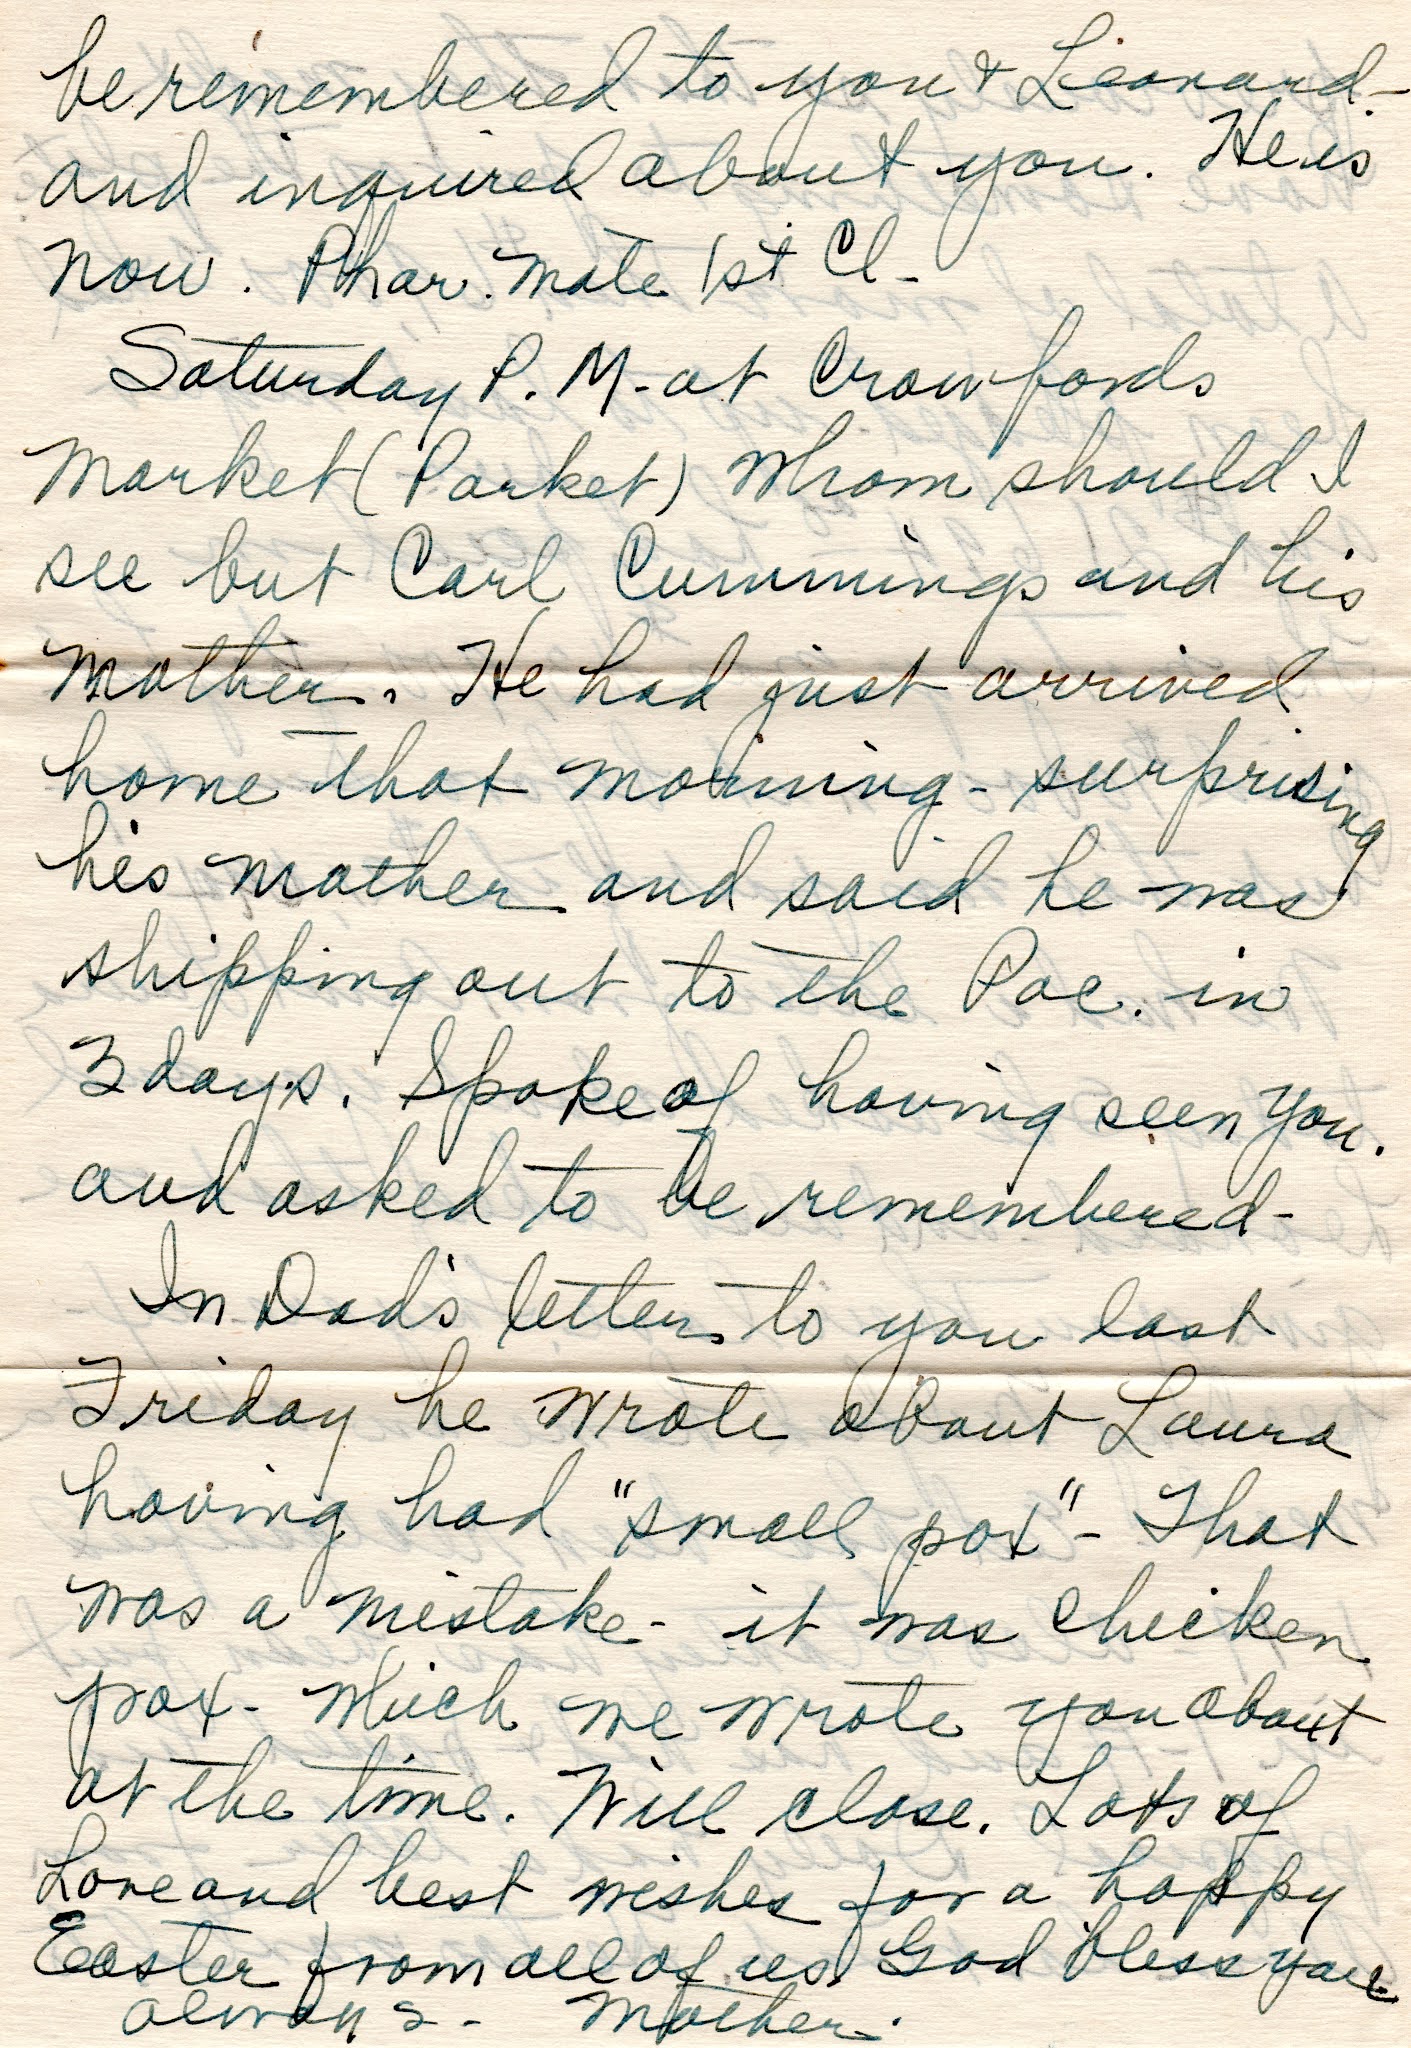 be remembered to you & Leonard -
and inquired about you. He is
now. Phar. Mate 1st Cl -
Saturday P.M. - at Crowfords
Market (Parket) whom should I
see but Carl Cummings and his
Mother. He had just arrived
home that morning - surprising
his mother and said he was
shipping out to the Pac. in
3 days. Spoke of having seen you.
and asked to be remembered -
In Dad's letter to you last
Friday he wrote about Laura
having had "small pox" - That
was a mistake - it was chicken
pox - which we wrote you about
at the time. Will close. Lots of
Love and best wishes for a happy
Easter from all of us. God bless you
always - Mother.